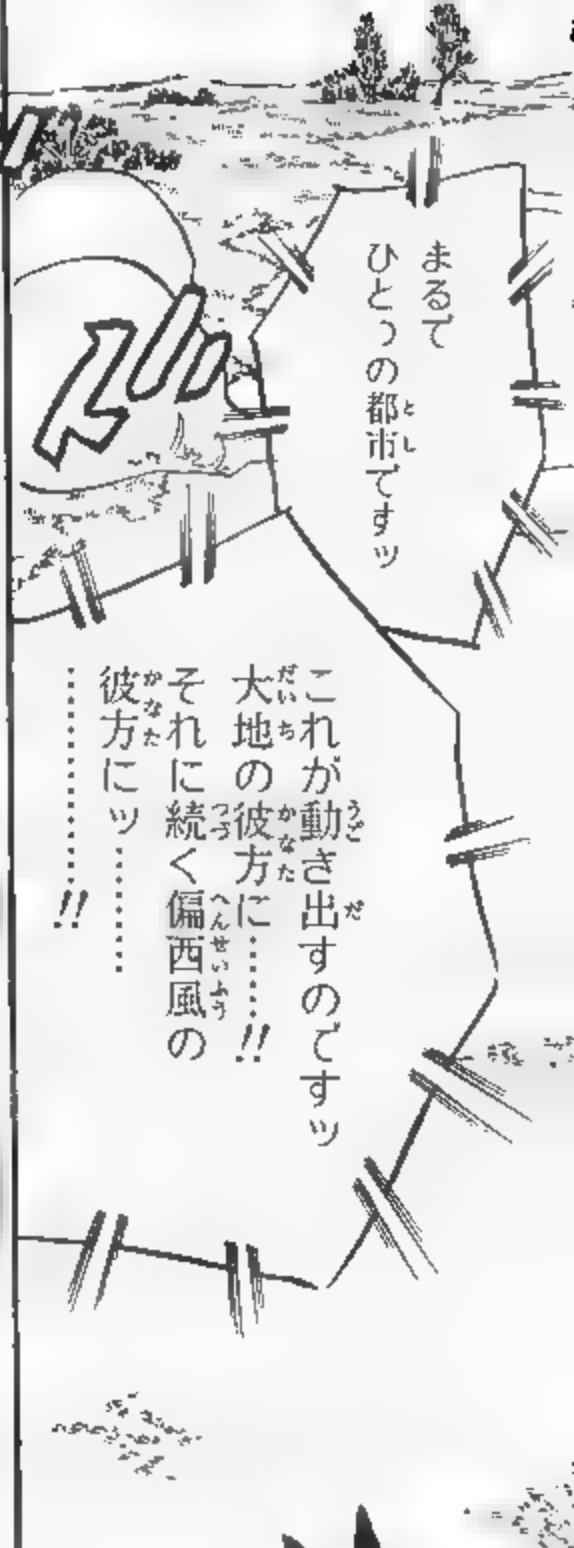 まるで
ひとつの都市ですッ
これが動き出すのですッ
大地の彼方に……!!
それに続く偏西風の
彼方にッ………
……………!!